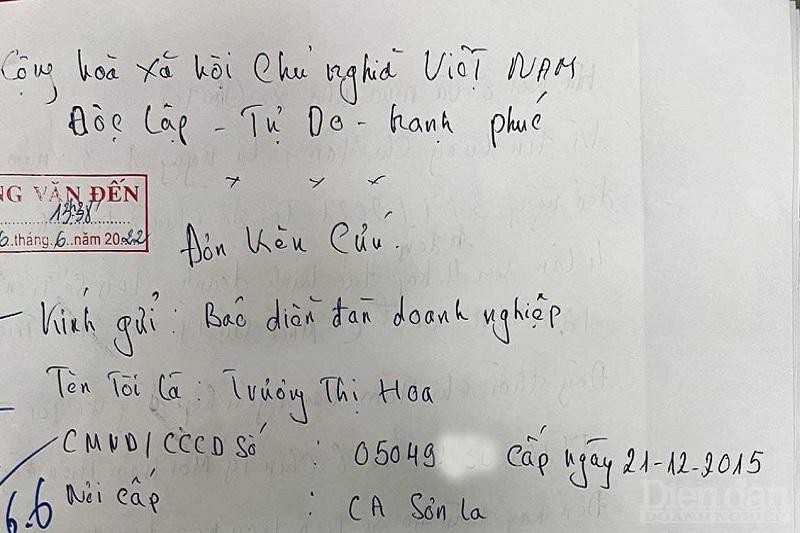 Cộng hoà xã hội Chủ nghĩa Việt NAM
Độc lập - Tự Do - hạnh phúc
NG VĂN ĐẾN
1338
6.tháng.6..năm 2022
Đơn Kêu Cứu.
- Kính gửi : Báo diễn đàn doanh nghiệp
Tên Tôi Là : Trương Thị Hoa
CMND/CCCD Số : 05049 Cấp ngày 21-12-2015
Nơi cấp : CA Sơn La
6.6
Diễn đàn
DOANH NGHIỆP